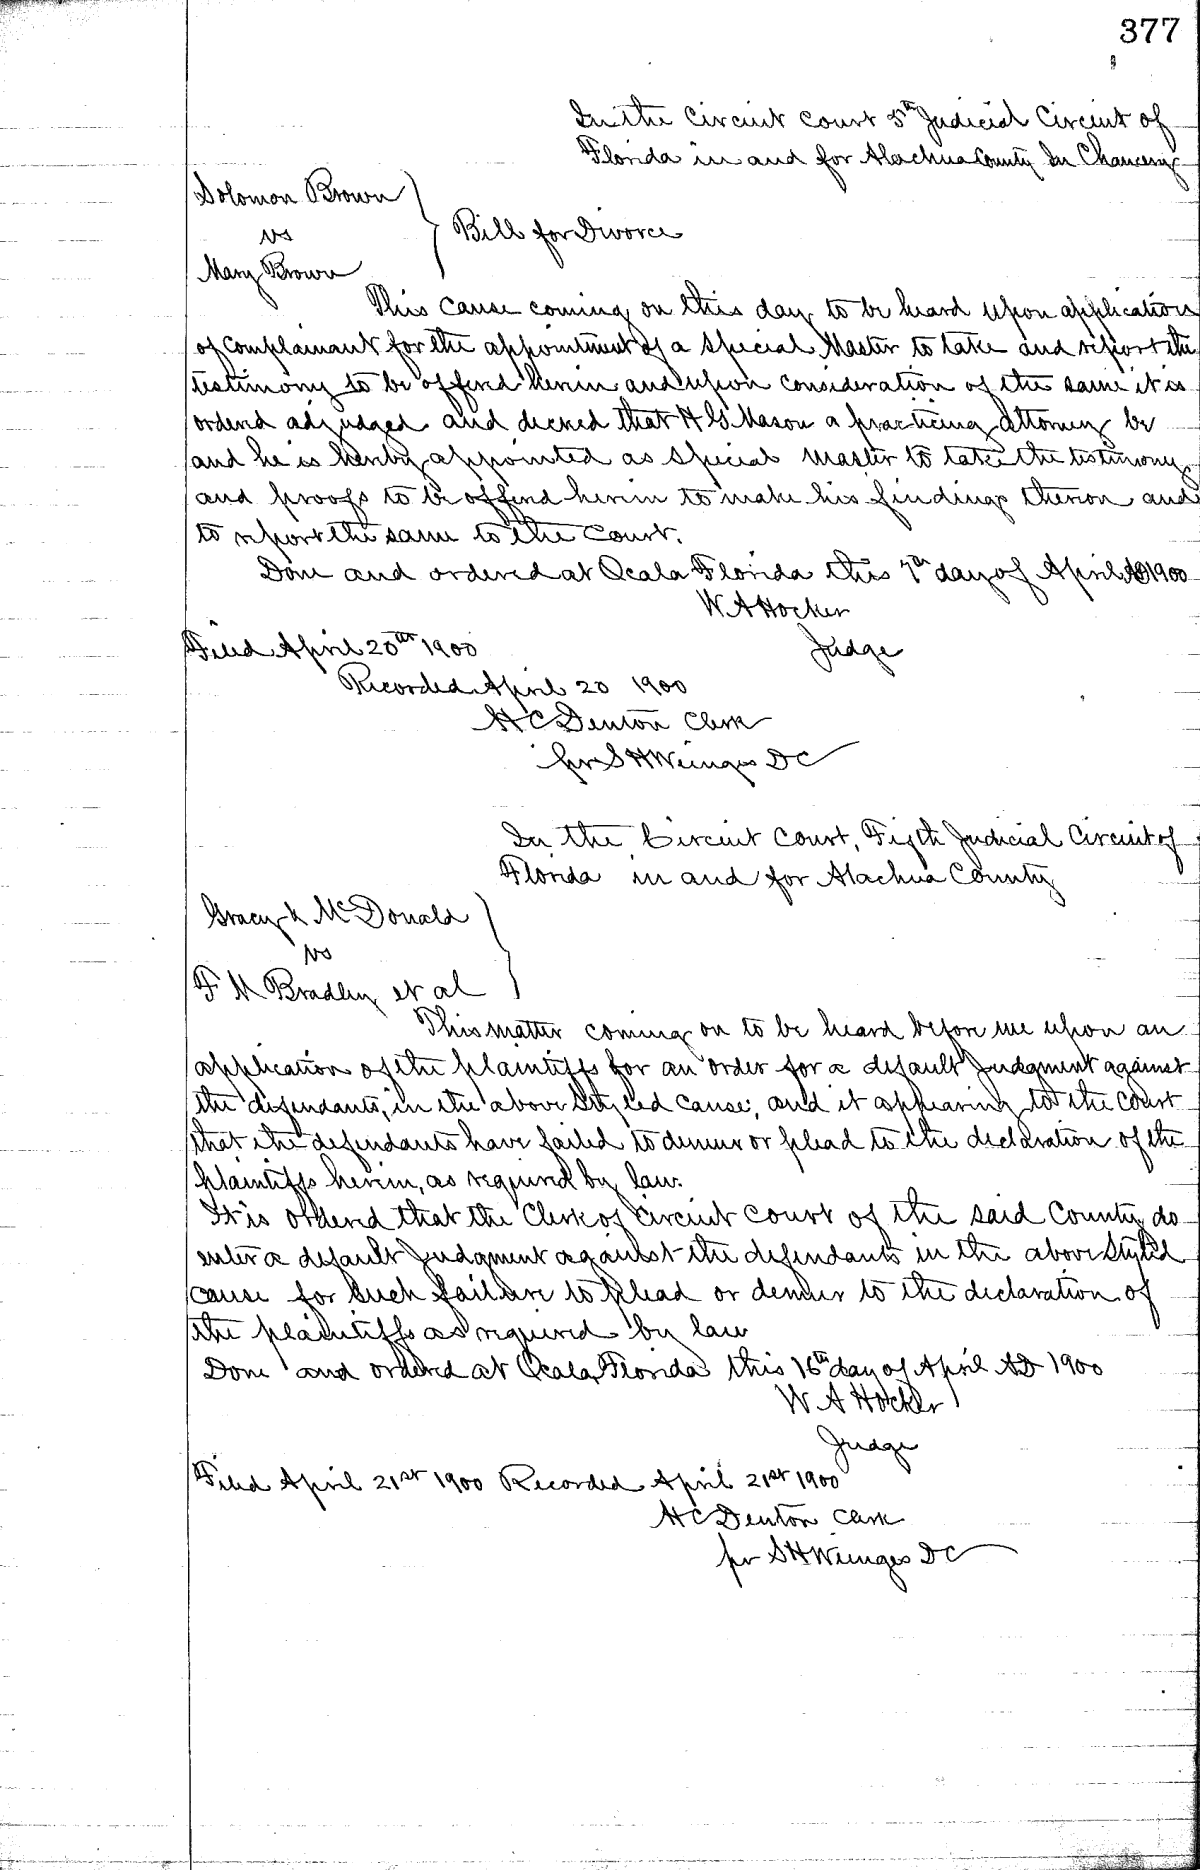 377
In the Circuit Court 5th Judicial Circuit of
Florida in and for Alachua County In Chancery
Solomon Brown
vs
Bill for Divorce
Mary Brown
This cause coming on this day to be heard upon application
of complainant for the appointment of a Special Master to take and report the
testimony to be offered herein and upon consideration of the same it is
ordered adjudged and decreed that H G Mason a practicing attorney be
and he is hereby appointed as Special Master to take the testimony
and proofs to be offered herein to make his findings thereon and
to report the same to the Court.
Done and ordered at Ocala Florida this 7th day of April AD 1900
W A Hocker
Judge
Filed April 20th 1900
Recorded April 20 1900
H C Denton Clerk
per S H Wienges DC
In the Circuit Court, Fifth Judicial Circuit of
Florida in and for Alachua County
Gracy & McDonald
vs
F M Bradley et al
This matter coming on to be heard before me upon an
application of the plaintiffs for an order for a default Judgment against
the defendants, in the above Styled cause; and it appearing to the Court
that the defendants have failed to demur or plead to the declaration of the
plaintiffs herein, as required by law.
It is ordered that the Clerk of Circuit Court of the said County do
enter a default Judgment against the defendants in the above Styled
cause for such failure to plead or demur to the declaration of
the plaintiffs as required by law
Done and ordered at Ocala, Florida this 16th day of April AD 1900
W A Hocker
Judge
Filed April 21st 1900 Recorded April 21st 1900
H C Denton Clerk
per S H Wienges DC